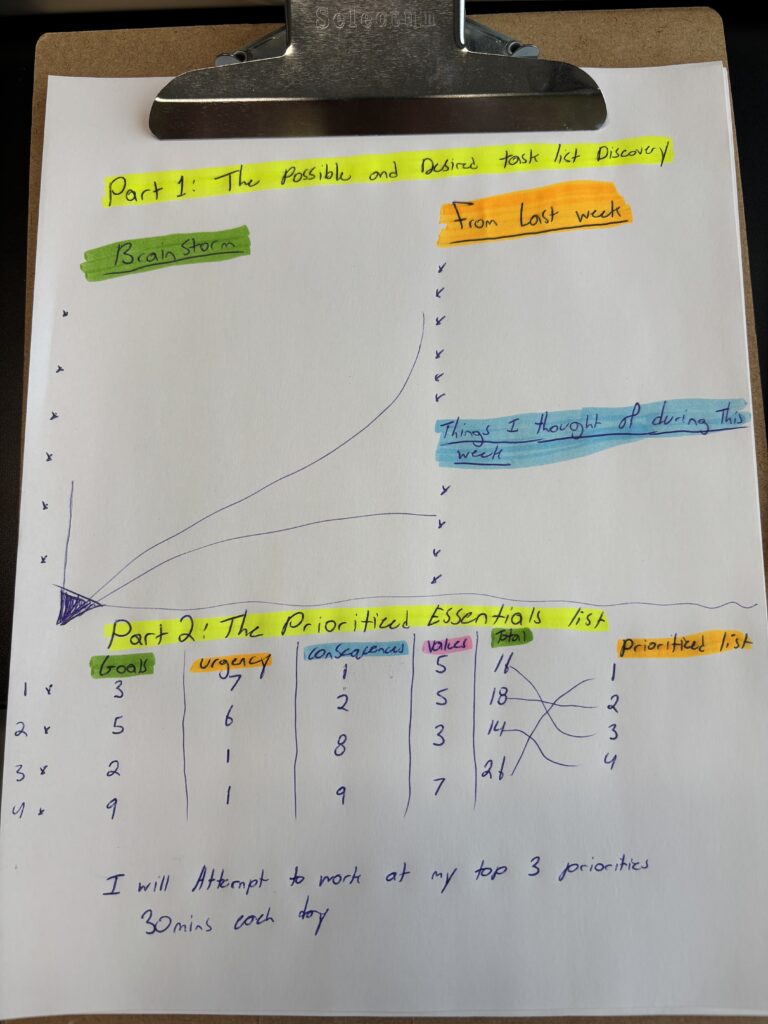 Selectum
Part 1: The Possible and Desired task list Discovery
Brainstorm
From Last week
Things I thought of during this
week
Part 2: The Prioritized Essentials list
Goals urgency consequences values Total Prioritized list
1 x 3 7 1 5 16 1
2 x 5 6 2 5 18 2
3 x 2 1 8 3 14 3
4 x 9 1 9 7 26 4
I will Attempt to work at my top 3 priorities
30mins each day